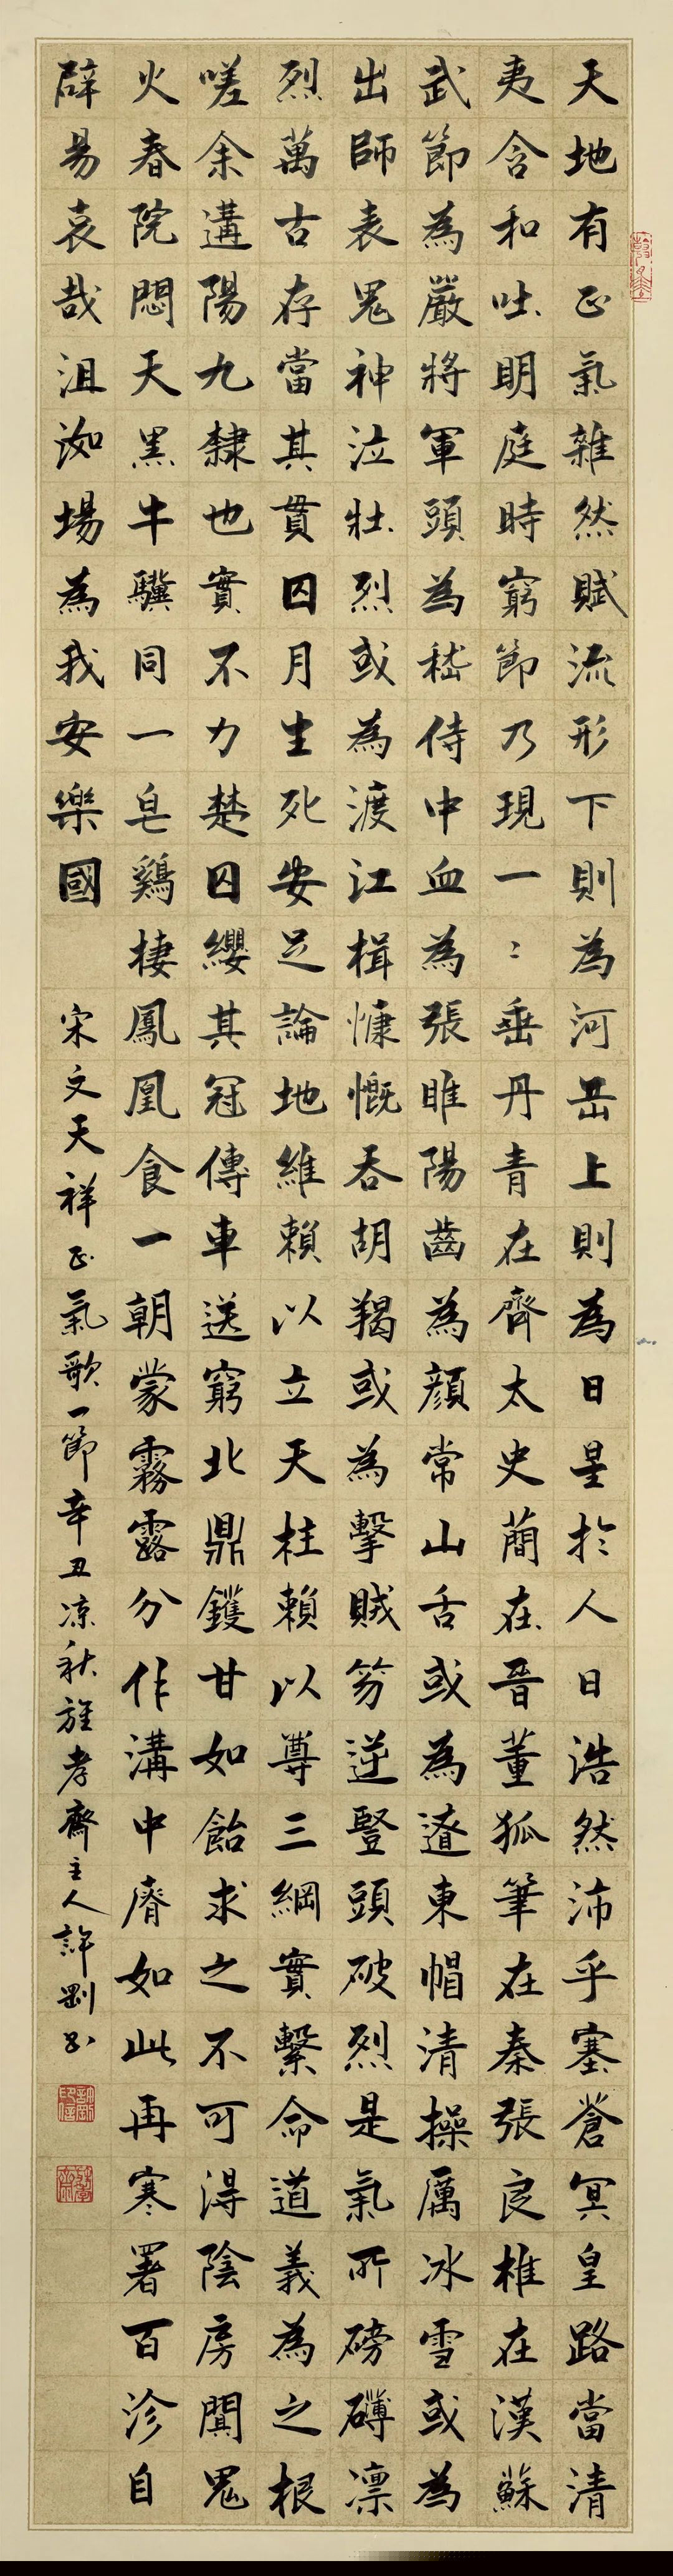 天地有正氣雜然賦流形下則為河岳上則為日星於人日浩然沛乎塞蒼冥皇路當清
夷含和吐明庭時窮節乃現一〻垂丹青在齊太史簡在晉董狐筆在秦張良椎在漢蘇
武節為嚴將軍頭為嵇侍中血為張睢陽齒為顏常山舌或為遼東帽清操厲冰雪或為
出師表鬼神泣壯烈或為渡江楫慷慨吞胡羯或為擊賊笏逆豎頭破烈是氣所磅礴凛
烈萬古存當其貫囚月生死安足論地維賴以立天柱賴以尊三綱實繫命道義為之根
嗟余遘陽九隸也實不力楚囚纓其冠傳車送窮北鼎鑊甘如飴求之不可得陰房闃鬼
火春院閟天黑牛驥同一皂鷄棲鳳凰食一朝蒙霧露分作溝中瘠如此再寒署百沴自
辟易哀哉沮洳場為我安樂國 宋文天祥正氣歌一節辛丑凉秋旌孝齋主人許剛書